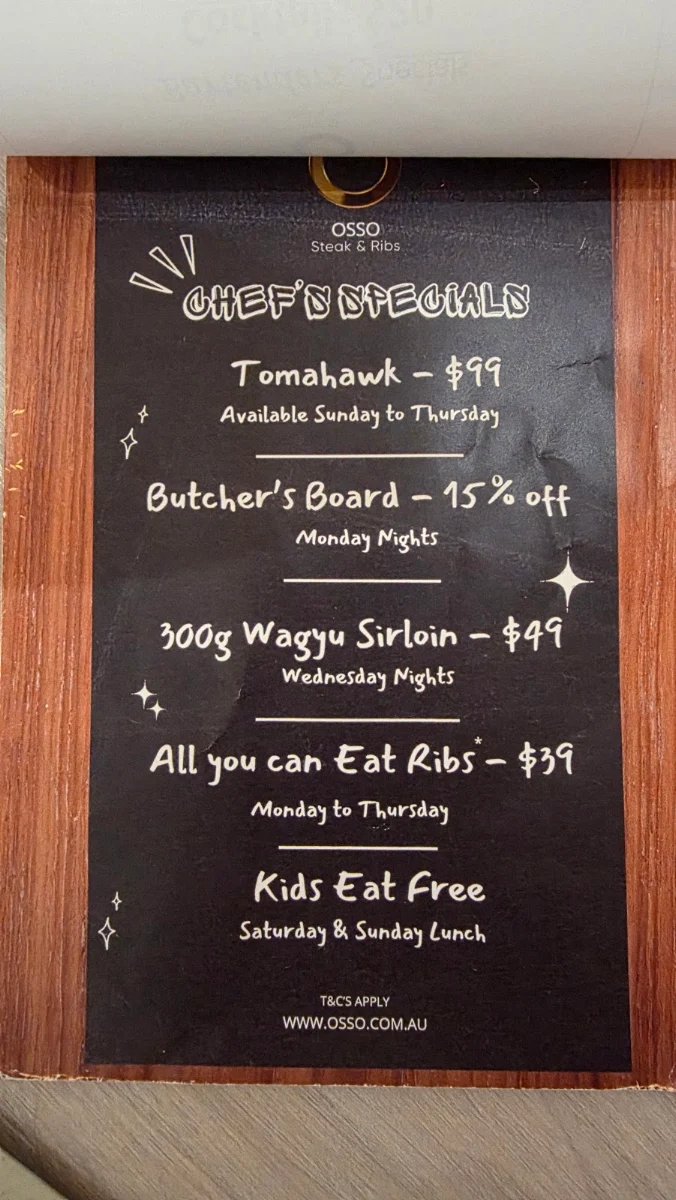 OSSO
Steak & Ribs
CHEF'S SPECIALS
Tomahawk – $99
Available Sunday to Thursday
Butcher's Board – 15% off
Monday Nights
300g Wagyu Sirloin – $49
Wednesday Nights
All you can Eat Ribs* – $39
Monday to Thursday
Kids Eat Free
Saturday & Sunday Lunch
T&C'S APPLY
WWW.OSSO.COM.AU